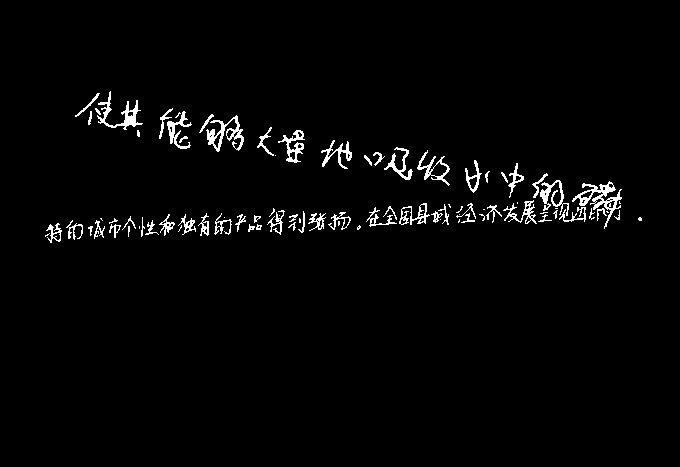 使其能够大量地吸收水中的
特的城市个性和独有的产品得到张扬。在全国县域经济发展呈现